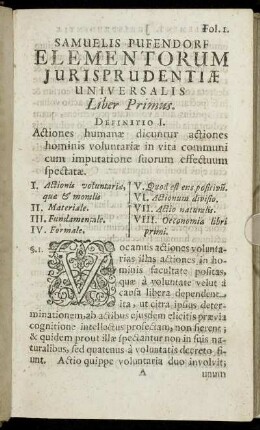 Fol. 1.
SAMUELIS PUFENDORF
ELEMENTORUM
JURISPRUDENTIÆ
UNIVERSALIS
Liber Primus.
DEFINITIO I.
Actiones humanæ dicuntur actiones
hominis voluntariæ in vita communi
cum imputatione suorum effectuum
spectatæ.
I. Actionis voluntariæ,
quæ &
II. Materiale.
III. Fundamentale.
IV. Formale.
V. Quod est ens positivũ.
VI. Actionum divisio.
VII. Actio naturalis.
VIII. Oeconomia libri
primi.
§.1. VOcamus actiones volunta-
rias illas actiones in ho-
minis facultate positas,
quæ à voluntate velut à
causa libera dependent,
ita, ut citra ipsius deter-
minationem ab actibus ejusdem elicitis prævia
cognitione intellectus profectam, non fierent;
& quidem prout illæ spectantur non in suis na-
turalibus, sed quatenus à voluntatis decreto fi-
unt. Actio quippe voluntaria duo involvit;
A unum